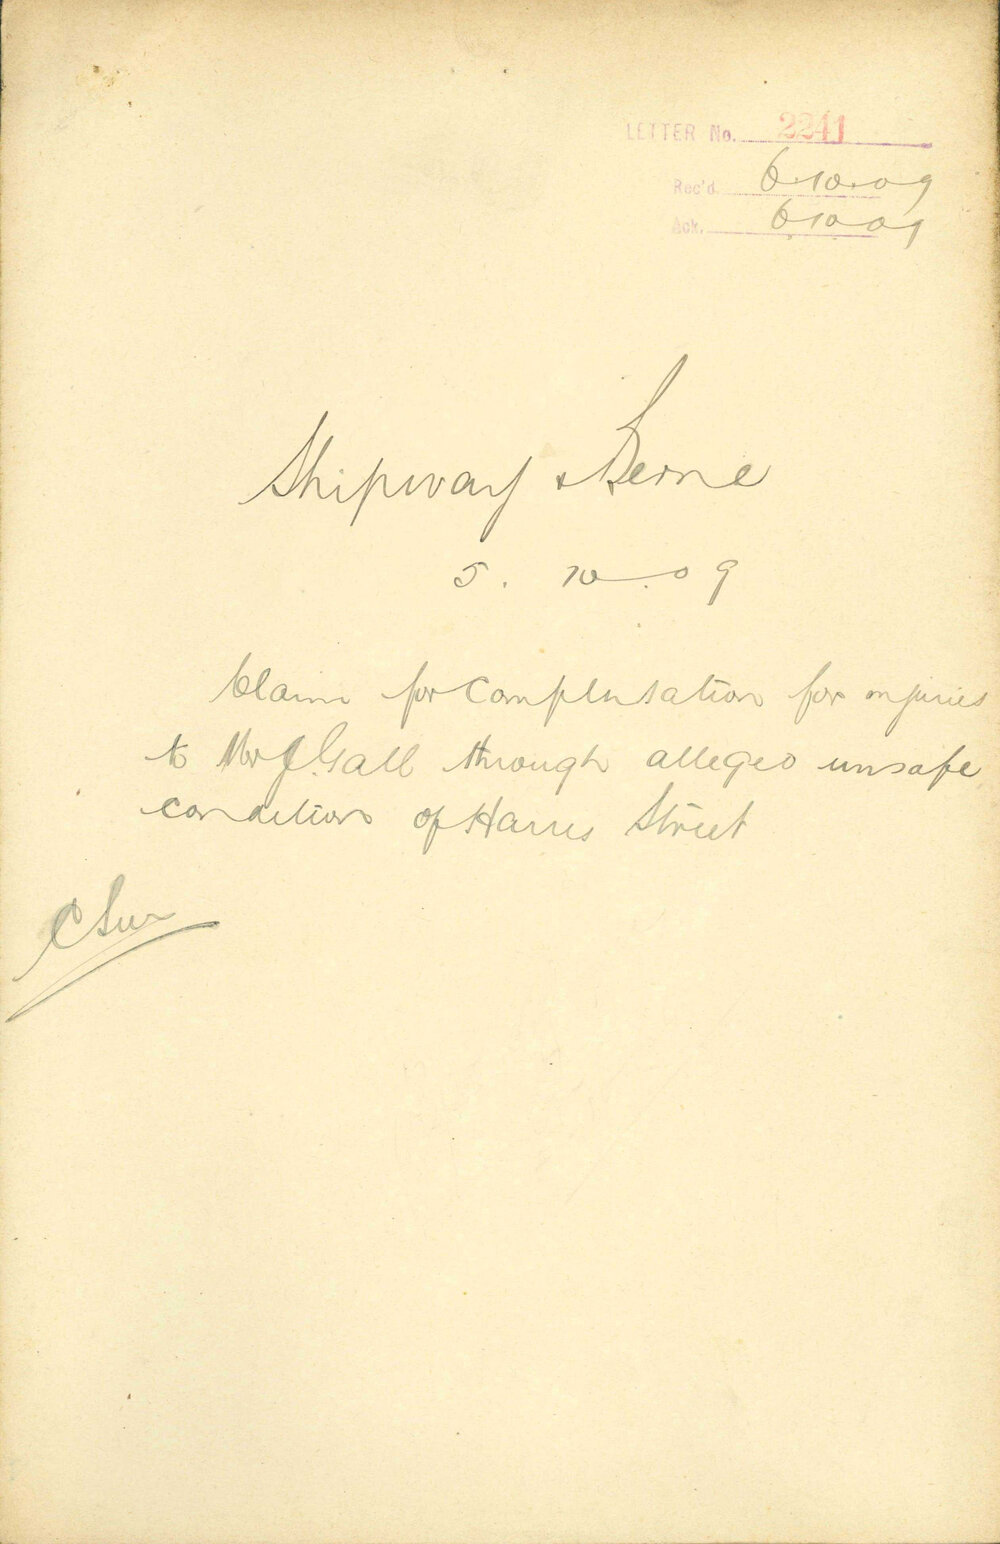 LETTER No. 2241
Rec'd. 6.10.09
Ack. 6.10.09
Shipway & Berne
5. 10. 09
Claim for compensation for injuries
to Mr J Gall through alleged unsafe
condition of Harris Street
C Sur